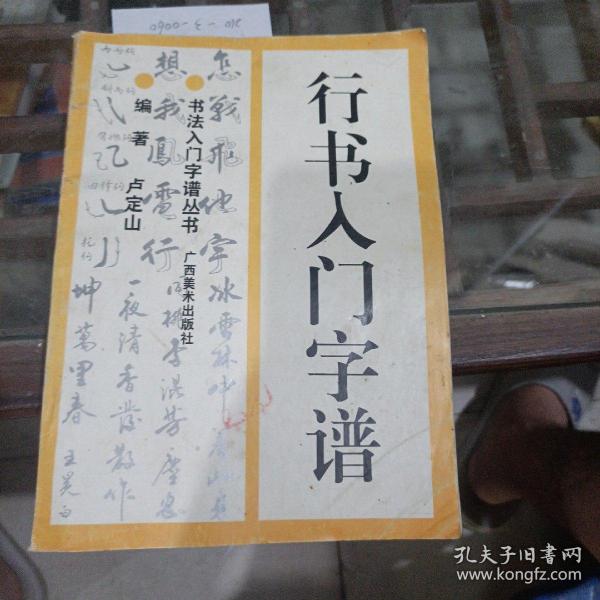 行书入门字谱
书法入门字谱丛书 广西美术出版社
编著 卢定山
怎戰飛他宇
想我鳳雷行
冰雪林中
桃李混芳塵忽
一夜清香發散作
坤萬里春 王冕句
孔夫子旧书网
www.kongfz.com